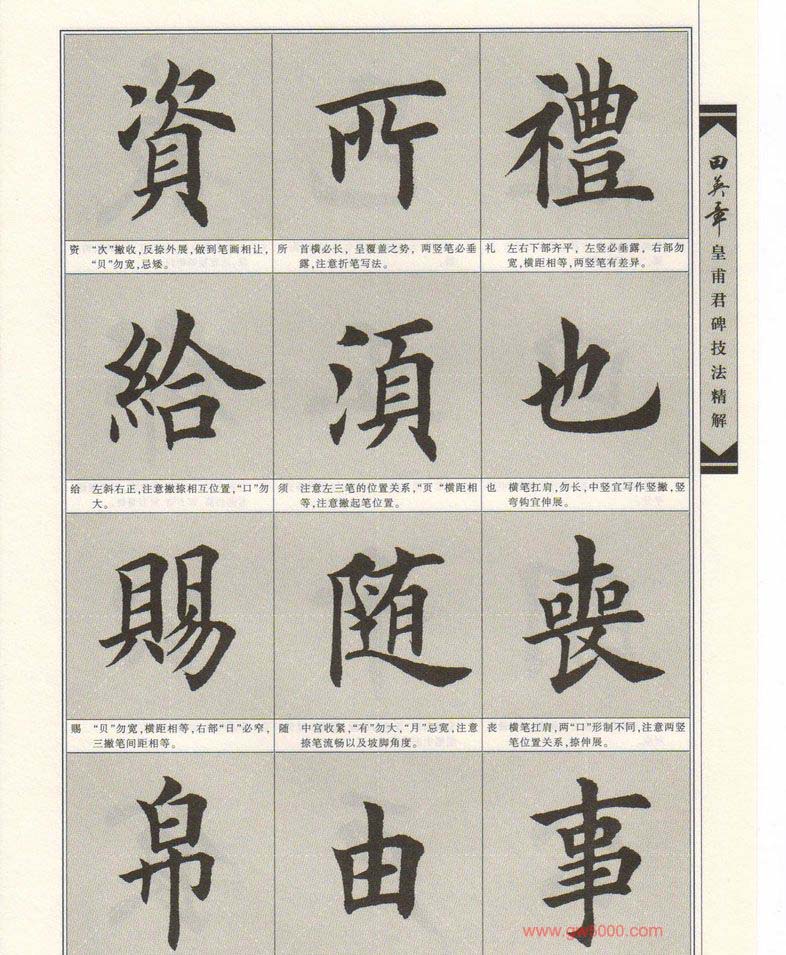 資
所
禮
资 “次”撇收，反捺外展，做到笔画相让，
“贝”勿宽，忌矮。
所 首横必长，呈覆盖之势，两竖笔必垂
露，注意折笔写法。
礼 左右下部齐平，左竖必垂露，右部勿
宽，横距相等，两竖笔有差异。
給
須
也
给 左斜右正，注意撇捺相互位置，“口”勿
大。
须 注意左三笔的位置关系，“页“横距相
等，注意撇起笔位置。
也 横笔扛肩，勿长，中竖宜写作竖撇，竖
弯钩宜伸展。
賜
随
喪
赐 “贝”勿宽，横距相等，右部“日”必窄，
三撇笔间距相等。
随 中宫收紧，“有”勿大，“月”忌宽，注意
捺笔流畅以及坡脚角度。
丧 横笔扛肩，两“口”形制不同，注意两竖
笔位置关系，捺伸展。
帛
由
事
田英章
皇甫君碑技法精解
www.gw5000.com